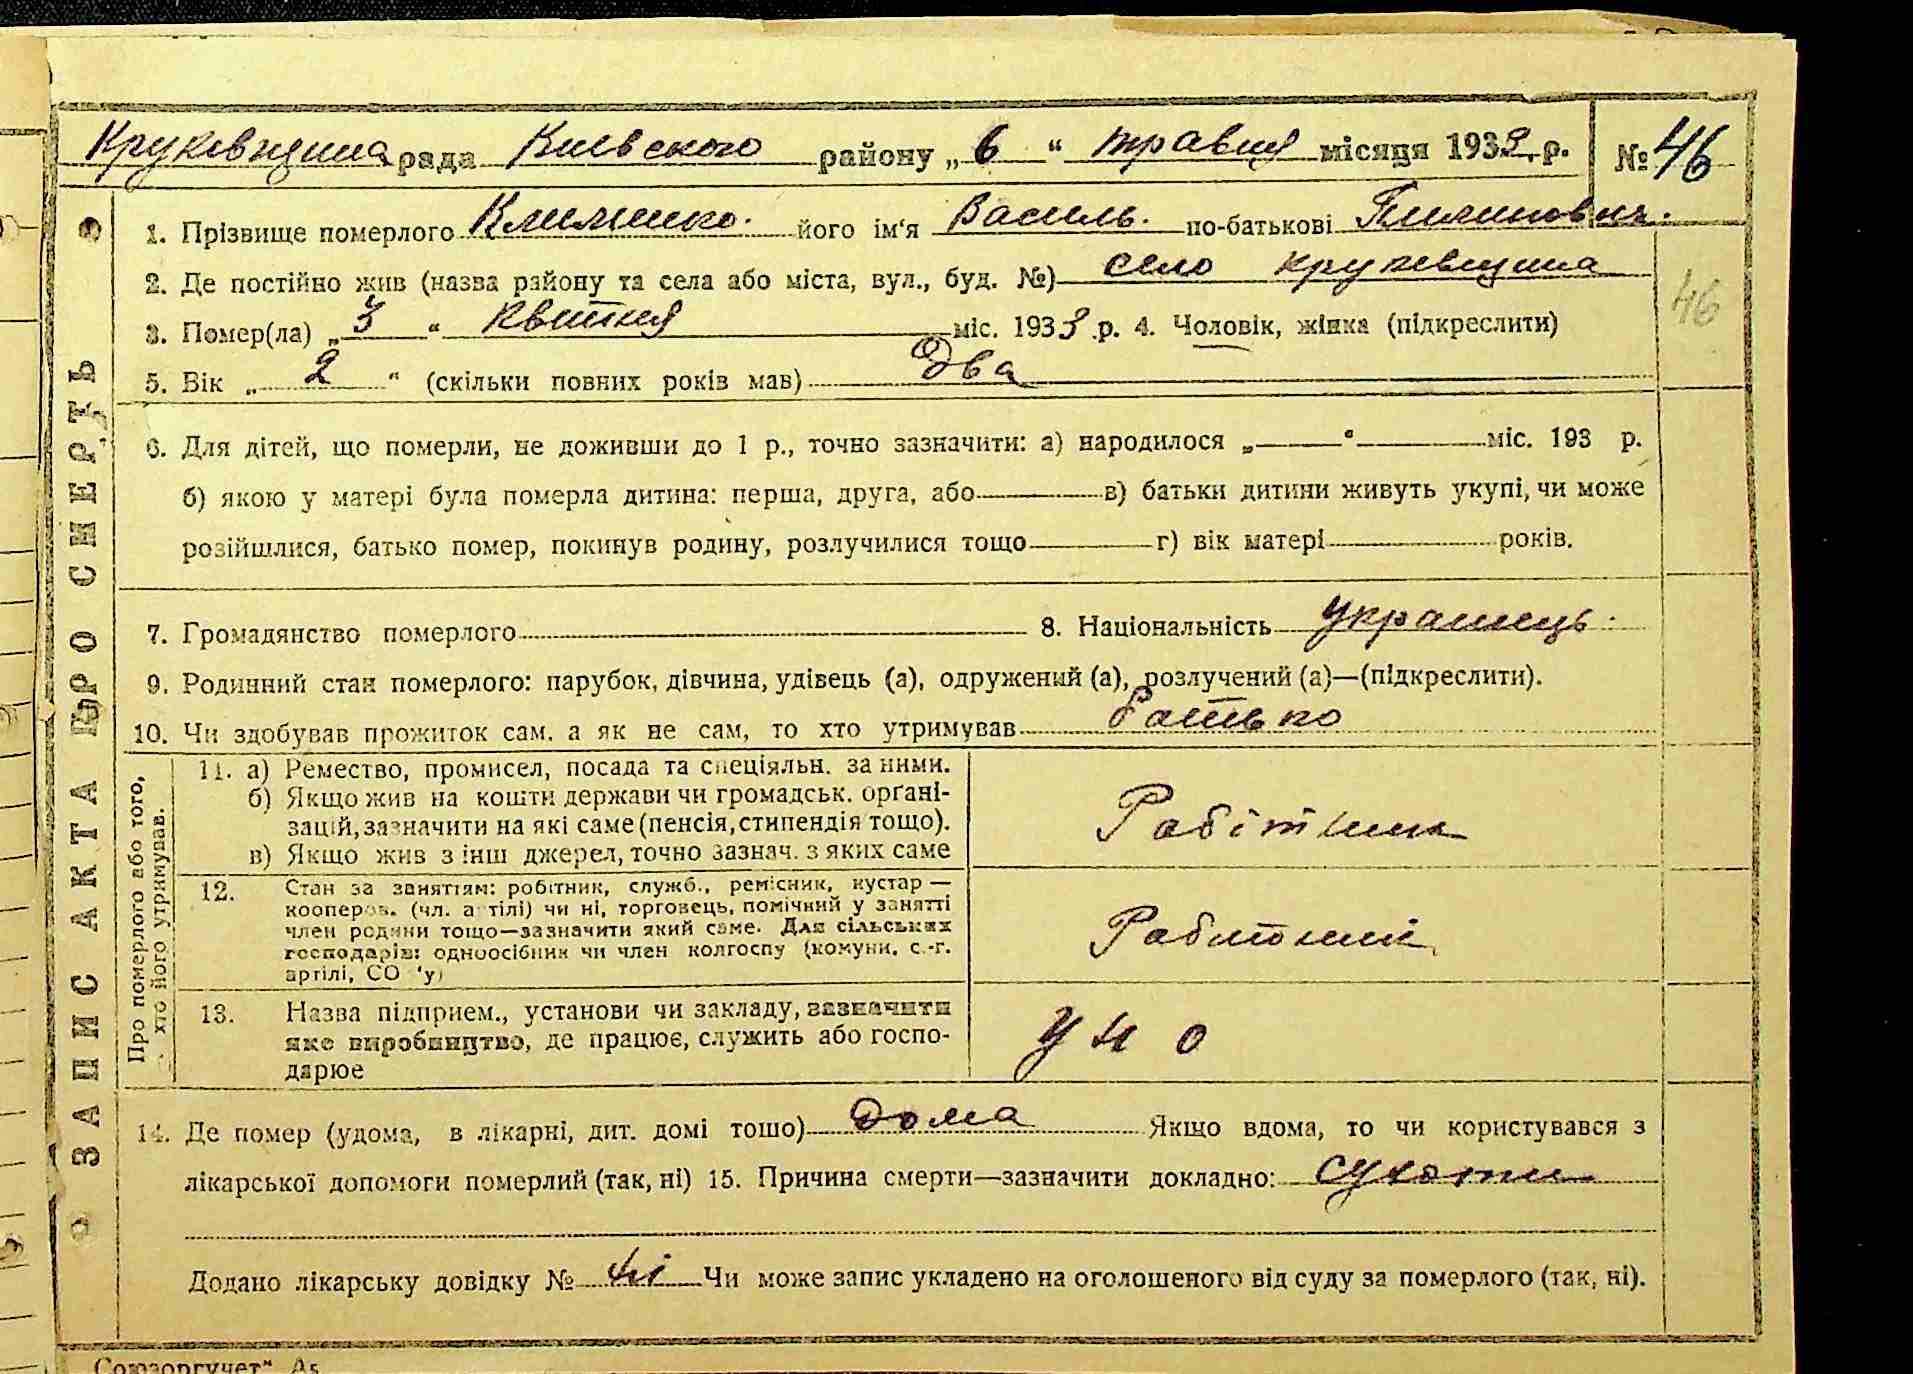 Круківщина рада Київського району „ 6 “ травня місяця 1933 р. № 46
ЗАПИС АКТА ПРО СМЕРТЬ
1. Прізвище померлого Клименко. його ім'я Василь. по-батькові
2. Де постійно жив (назва району та села або міста, вул., буд. №) село Круківщина
46
3. Помер(ла) „ 3 “ квітня міс. 1933 р. 4. Чоловік, жінка (підкреслити)
5. Вік „ 2 “ (скільки повних років мав) Два
6. Для дітей, що померли, не доживши до 1 р., точно зазначити: а) народилося „ — “ — міс. 193 р.
б) якою у матері була померла дитина: перша, друга, або — в) батьки дитини живуть укупі, чи може
розійшлися, батько помер, покинув родину, розлучилися тощо — г) вік матері — років.
7. Громадянство померлого — 8. Національність Українець.
9. Родинний стан померлого: парубок, дівчина, удівець (а), одружений (а), розлучений (а)—(підкреслити).
10. Чи здобував прожиток сам, а як не сам, то хто утримував батько
Про померлого або того, хто його утримував.
11. а) Ремество, промисел, посада та спеціяльн. за ними.
б) Якщо жив на кошти держави чи громадськ. орґані-
зацій, зазначити на які саме (пенсія, стипендія тощо).
в) Якщо жив з інш джерел, точно зазнач. з яких саме
Робітник
12. Стан за заняттям: робітник, служб., ремісник, кустар —
кооперов. (чл. артілі) чи ні, торговець, помічний у занятті
член родини тощо—зазначити який саме. Для сільських
господарів: одноосібник чи член колгоспу (комуни, с.-г.
артілі, СО 'у)
Робітник
13. Назва підприєм., установи чи закладу, зазначити
яке виробництво, де працює, служить або госпо-
дарює
14. Де помер (удома, в лікарні, дит. домі тощо) Дома Якщо вдома, то чи користувався з
лікарської допомоги померлий (так, ні) 15. Причина смерти—зазначити докладно: сухоти
Додано лікарську довідку № ні Чи може запис укладено на оголошеного від суду за померлого (так, ні).
„Союзоргучет“ А5